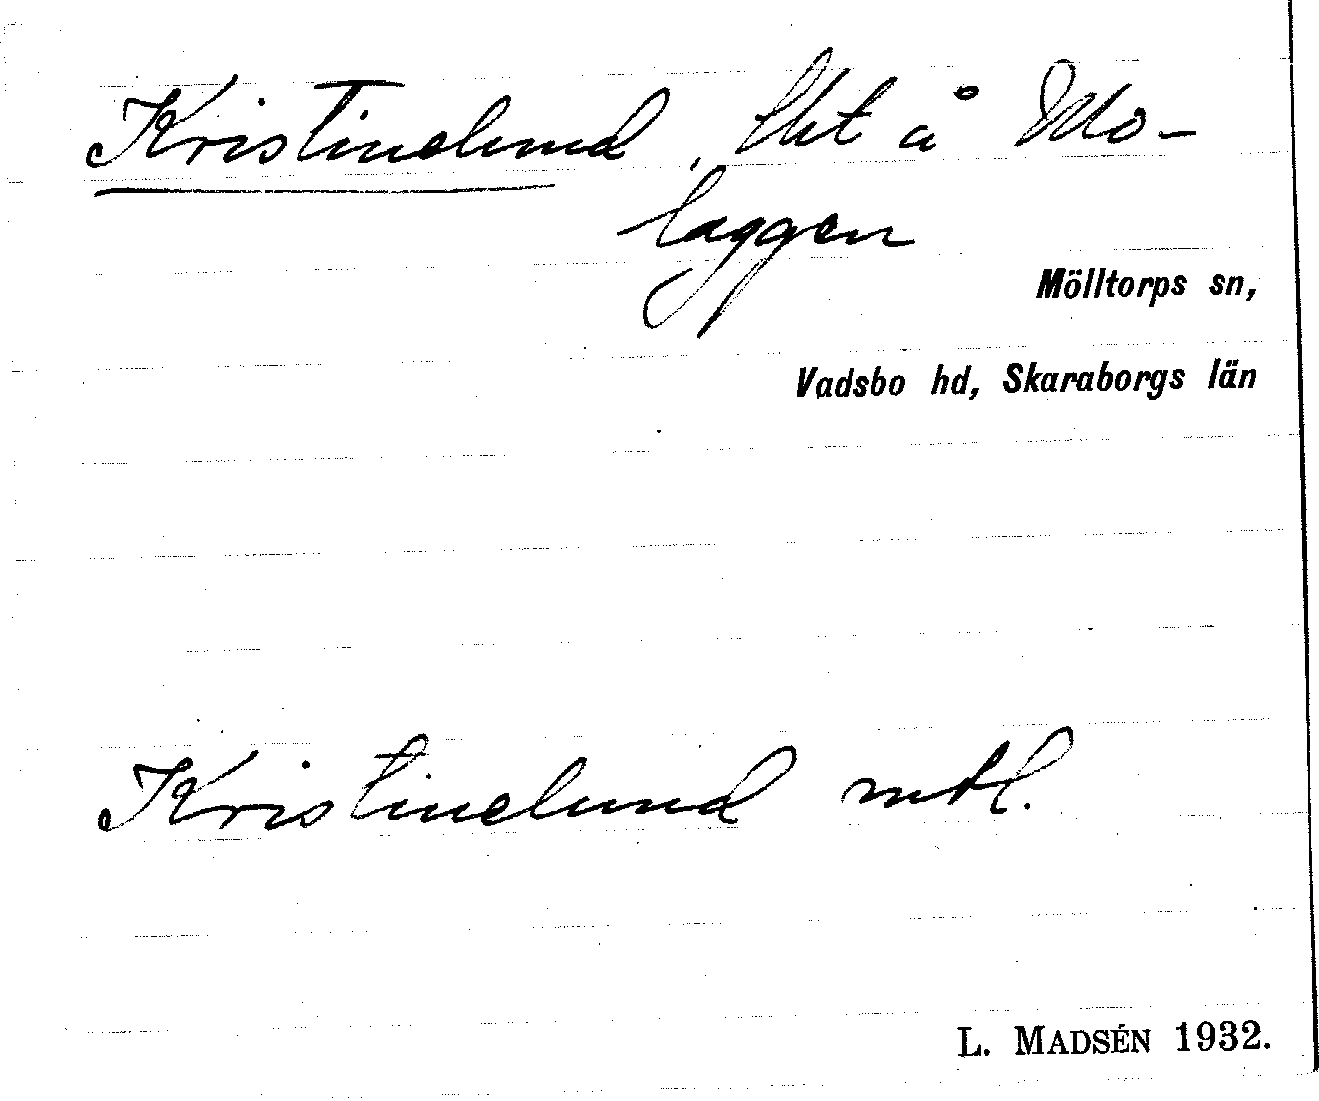 Kristinelund, tht å Mo-
laggen
Mölltorps sn,
Vadsbo hd, Skaraborgs län
Kristinelund mtl.
L. MADSÉN 1932.